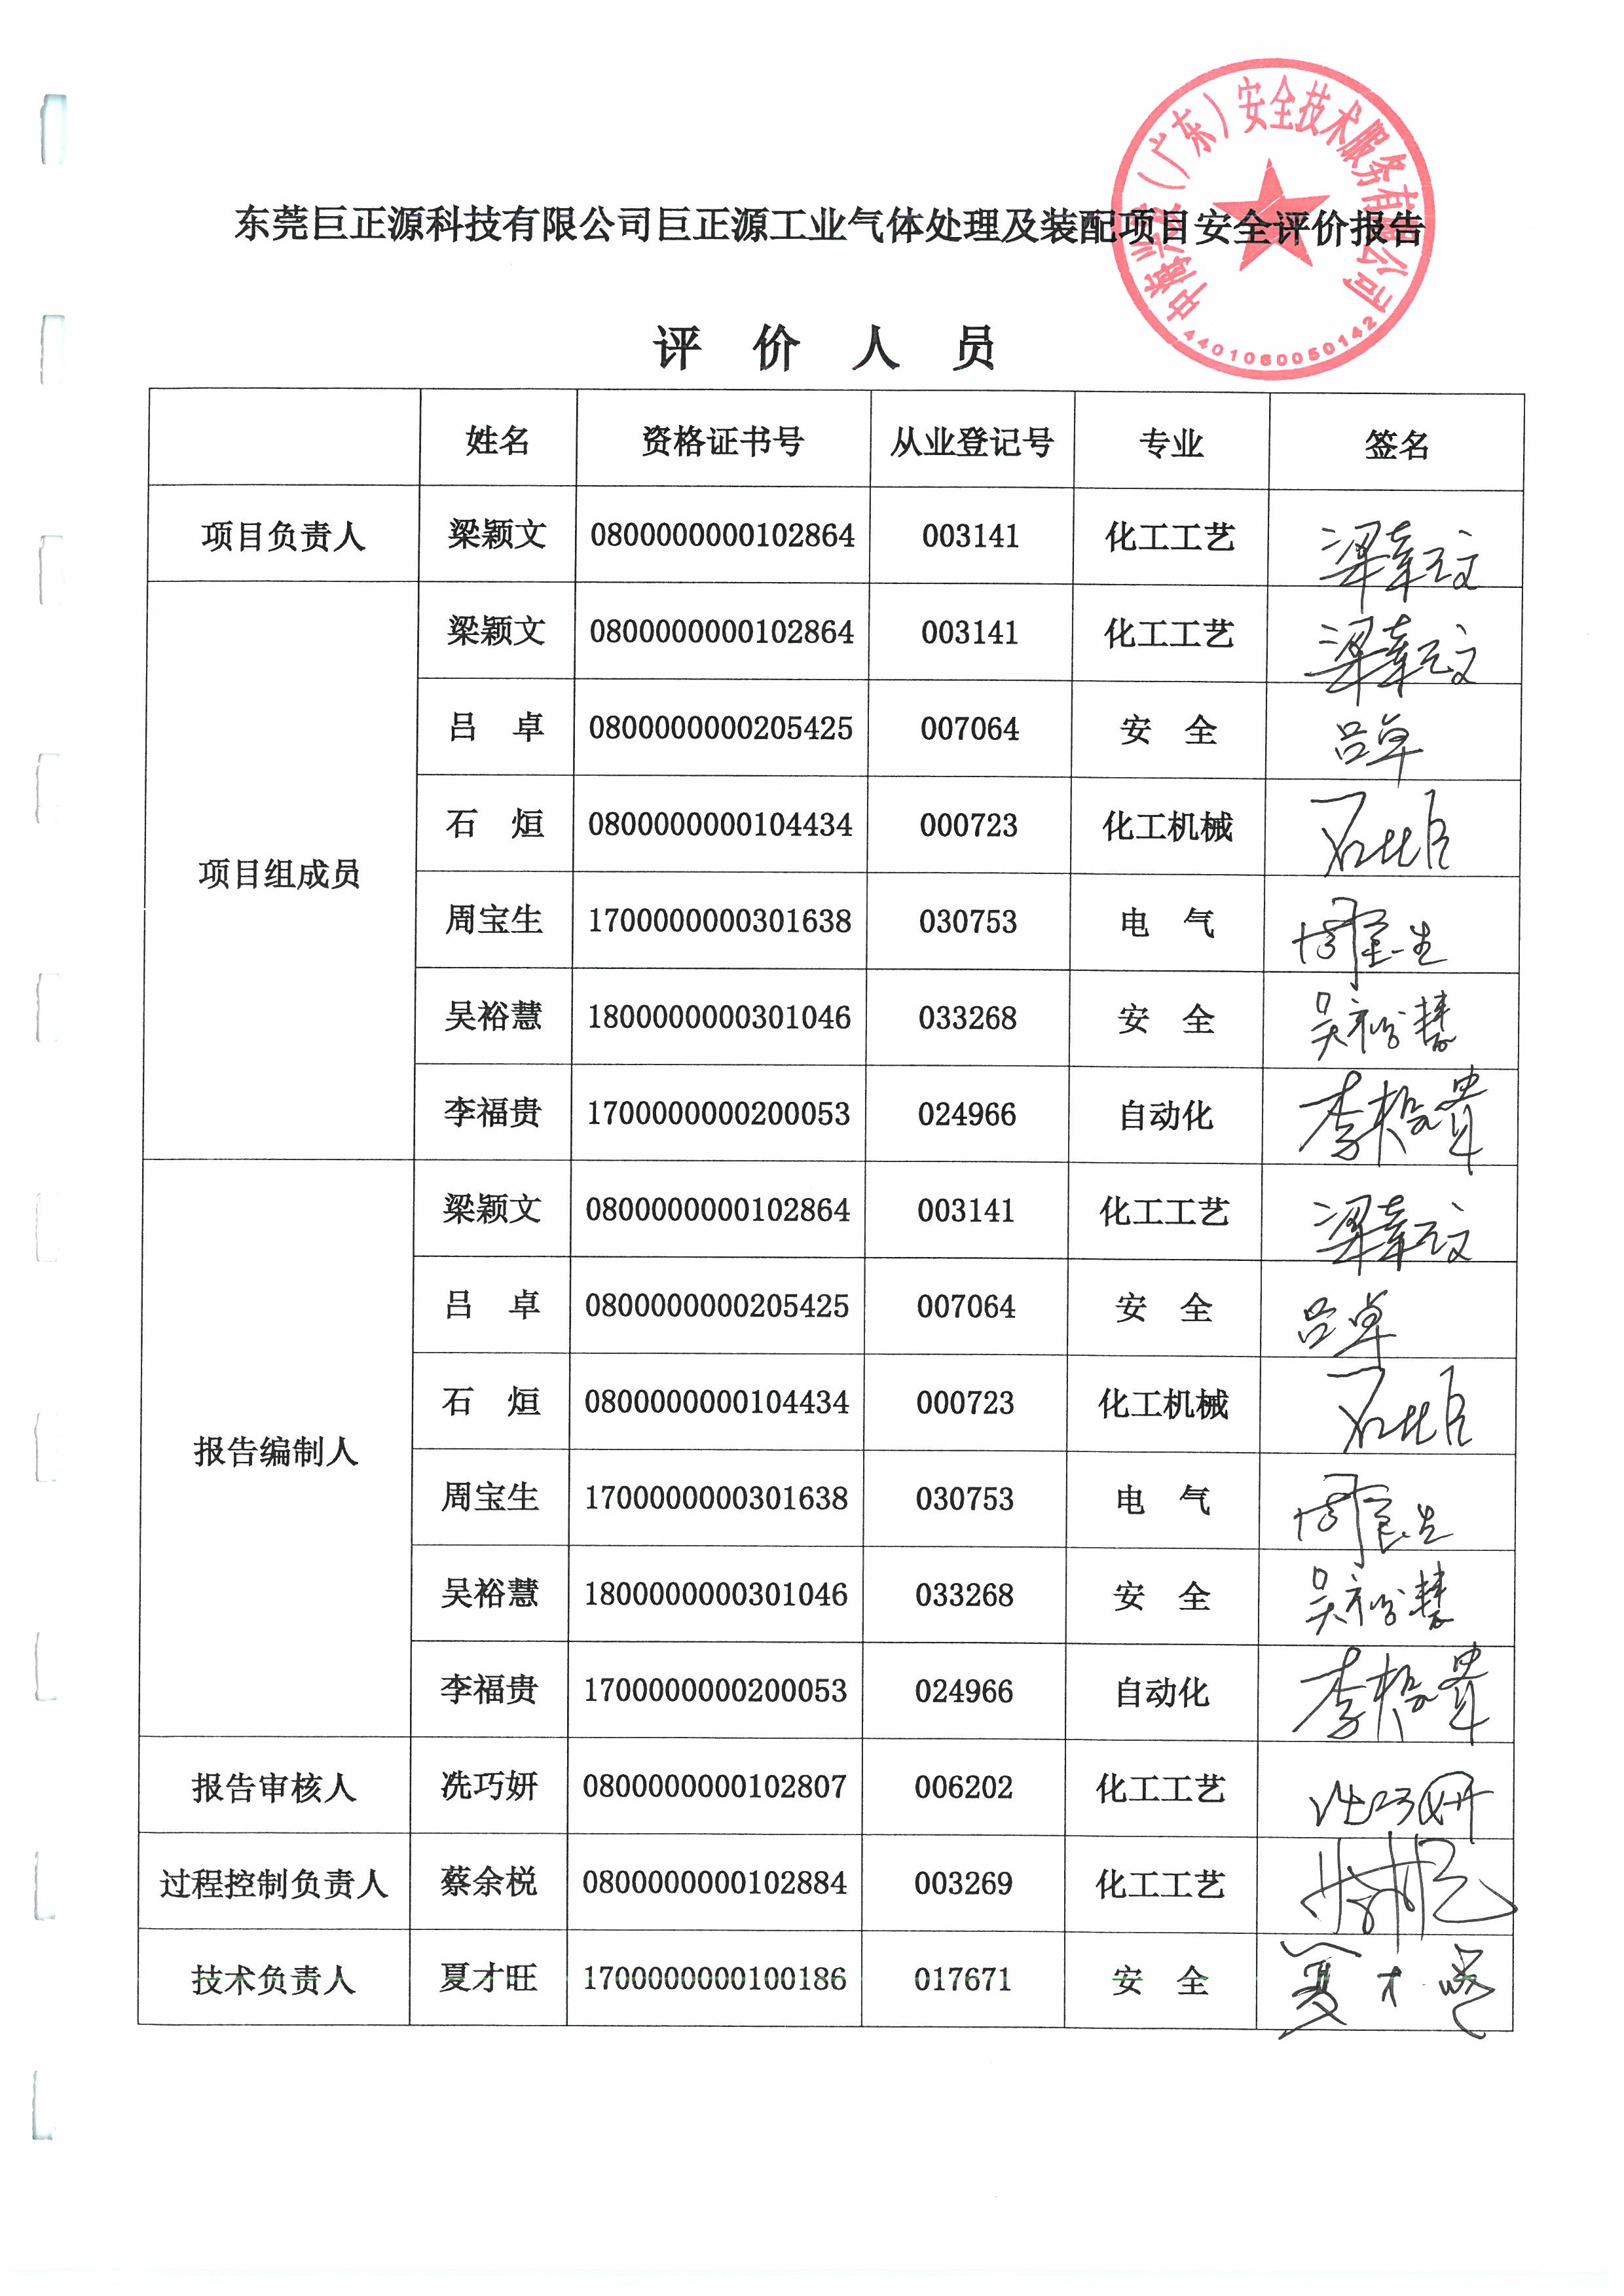 东莞巨正源科技有限公司巨正源工业气体处理及装配项目安全评价报告
（广东）安全技术服务有限公司
评 价 人 员
姓名 资格证书号 从业登记号 专业 签名
项目负责人 梁颖文 0800000000102864 003141 化工工艺 梁颖文
项目组成员 梁颖文 0800000000102864 003141 化工工艺 梁颖文
吕 卓 0800000000205425 007064 安 全 吕卓
石 烜 0800000000104434 000723 化工机械 石烜
周宝生 1700000000301638 030753 电 气 周宝生
吴裕慧 1800000000301046 033268 安 全 吴裕慧
李福贵 1700000000200053 024966 自动化 李福贵
报告编制人 梁颖文 0800000000102864 003141 化工工艺 梁颖文
吕 卓 0800000000205425 007064 安 全 吕卓
石 烜 0800000000104434 000723 化工机械 石烜
周宝生 1700000000301638 030753 电 气 周宝生
吴裕慧 1800000000301046 033268 安 全 吴裕慧
李福贵 1700000000200053 024966 自动化 李福贵
报告审核人 冼巧妍 0800000000102807 006202 化工工艺 冼巧妍
过程控制负责人 蔡余棁 0800000000102884 003269 化工工艺
技术负责人 夏才旺 1700000000100186 017671 安 全 夏才旺